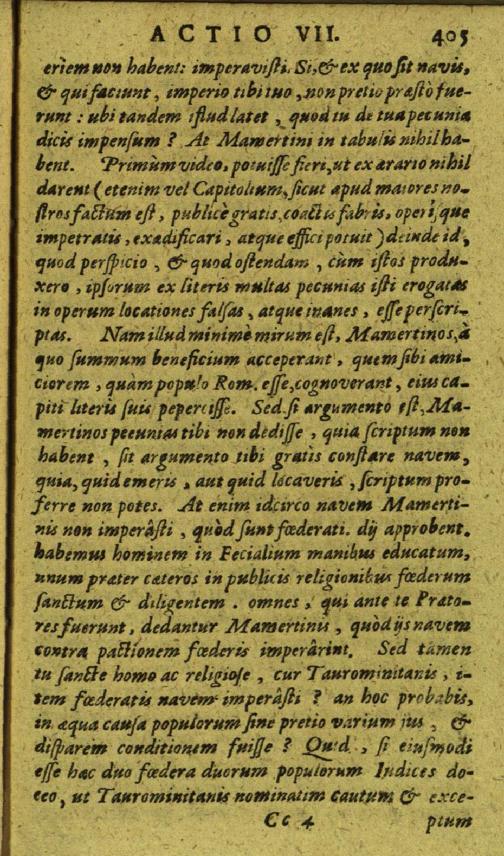 ACTIO VII. 405
eriem non habent: imperavisti. Si, & ex quo sit navis,
& qui faciunt, imperio tibi tuo, non pretio præstò fue-
runt: ubi tandem istud latet, quod tu de tua pecunia
dicis impensum? At Mamertini in tabulis nihil ha-
bent. Primùm video, potuisse fieri, ut ex ærario nihil
darent (etenim vel Capitolium, sicut apud maiores no-
stros factum est, publicè gratis, coactis fabris, operisque
impetratis, exædificari, atque effici potuit) deinde id,
quod perspicio, & quod ostendam, cùm istos produ-
xero, ipsorum ex literis multas pecunias isti erogatas
in operum locationes falsas, atque inanes, esse perscri-
ptas. Nam illud minimè mirum est, Mamertinos, à
quo summum beneficium acceperant, quem sibi ami-
ciorem, quàm populo Rom. esse, cognoverant, eius ca-
piti literis suis pepercisse. Sed si argumento est, Ma-
mertinos peeunias tibi non dedisse, quia scriptum non
habent, sit argumento tibi gratis constare navem,
quia, quid emeris, aut quid locaveris, scriptum pro-
ferre non potes. At enim idcirco navem Mamerti-
nis non imperâsti, quòd sunt fœderati. dij approbent.
habemus hominem in Fecialium manibus educatum,
unum præter cæteros in publicis religionibus fœderum
sanctum & diligentem. omnes, qui ante te Præto-
res fuerunt, dedantur Mamertinis, quòd ijs navem
contra pactionem fœderis imperârint. Sed tamen
tu sancte homo ac religiose, cur Taurominitanis, i-
tem fœderatis navem imperâsti? an hoc probabis,
in æqua causa populorum sine pretio varium ius, &
disparem conditionem fuisse? Quid, si eiusmodi
esse hæc duo fœdera duorum populorum Iudices do-
ceo, ut Taurominitanis nominatim cautum & exce-
Cc 4 ptum